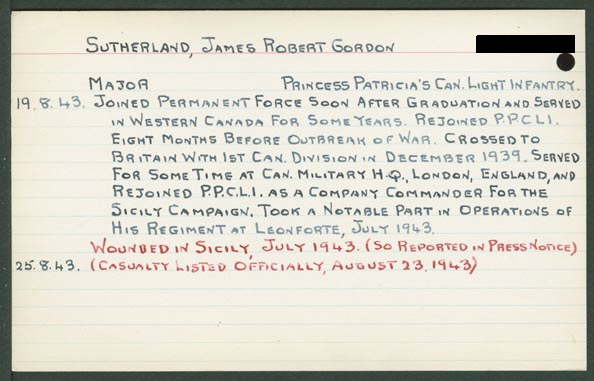 SUTHERLAND, JAMES ROBERT GORDON
MAJOR PRINCESS PATRICIA'S CAN. LIGHT INFANTRY.
19.8.43. JOINED PERMANENT FORCE SOON AFTER GRADUATION AND SERVED
IN WESTERN CANADA FOR SOME YEARS. REJOINED P.P.C.L.I.
EIGHT MONTHS BEFORE OUTBREAK OF WAR. CROSSED TO
BRITAIN WITH 1ST CAN. DIVISION IN DECEMBER 1939. SERVED
FOR SOME TIME AT CAN. MILITARY H.Q., LONDON, ENGLAND, AND
REJOINED P.P.C.L.I. AS A COMPANY COMMANDER FOR THE
SICILY CAMPAIGN. TOOK A NOTABLE PART IN OPERATIONS OF
HIS REGIMENT AT LEONFORTE, JULY 1943.
WOUNDED IN SICILY, JULY 1943. (SO REPORTED IN PRESS NOTICE)
25.8.43. (CASUALTY LISTED OFFICIALLY, AUGUST 23, 1943)